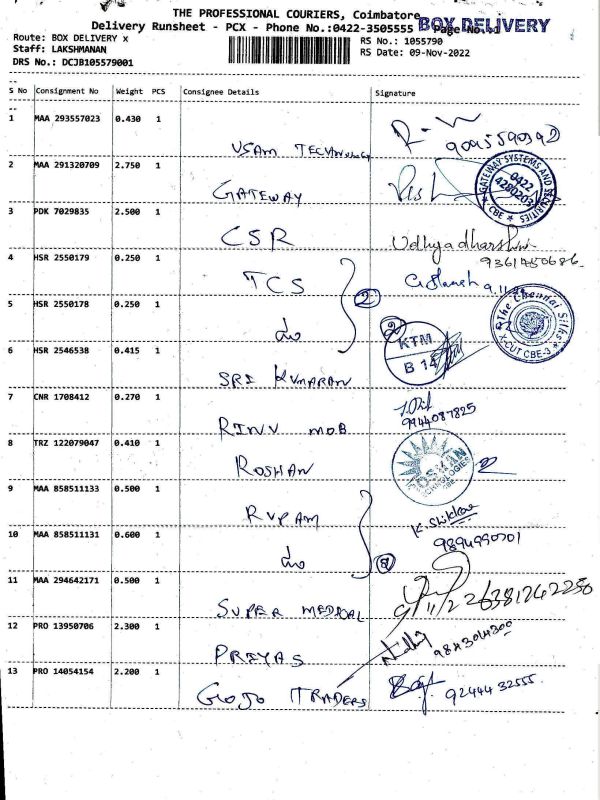 THE PROFESSIONAL COURIERS, Coimbatore
Delivery Runsheet - PCX - Phone No.:0422-3505555 Page No.:1
BOX DELIVERY
Route: BOX DELIVERY x
RS No.: 1055790
Staff: LAKSHMANAN
RS Date: 09-Nov-2022
DRS No.: DCJB105579001
S No Consignment No Weight PCS Consignee Details Signature
1 MAA 293557023 0.430 1
2 MAA 291320709 2.750 1 GATEWAY
GATEWAY SYSTEMS AND SECURITIES 0422 4280203 CBE
3 PDK 7029835 2.500 1 CSR
4 HSR 2550179 0.250 1 TCS 2
5 HSR 2550178 0.250 1 do
The Chennai Silks X-CUT CBE-3
6 HSR 2546538 0.415 1 SRI KUMARAN
KTM
B 14
7 CNR 1708412 0.270 1
9944087825
8 TRZ 122079047 0.410 1 ROSHAN
ROSHAN TECHNOLOGIES
9 MAA 858511133 0.500 1 RUPAM
10 MAA 858511131 0.600 1 do
11 MAA 294642171 0.500 1 SUPER MEDICAL
12 PRO 13950706 2.300 1 PREYAS
13 PRO 14054154 2.200 1 GOJO TRADERS
9244432555